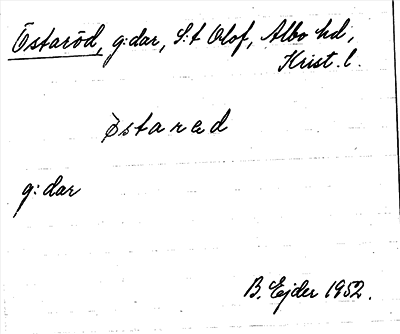 Östaröd, g:dar, S:t Olof, Albo hd,
Krist. l.
Östared
g:dar
B. Ejder 1952.